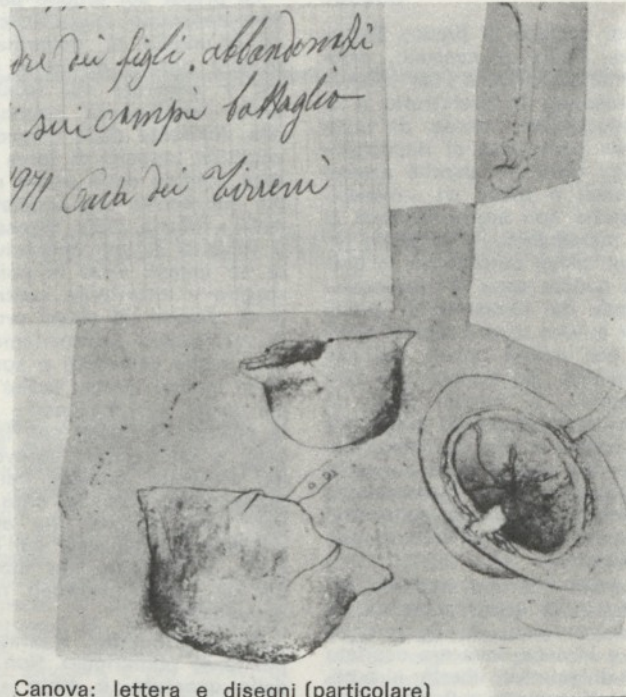 dre dei figli. abbandonati
sui campi battaglio
1971 Cava dei Tirreni
Canova: lettera e disegni (particolare)